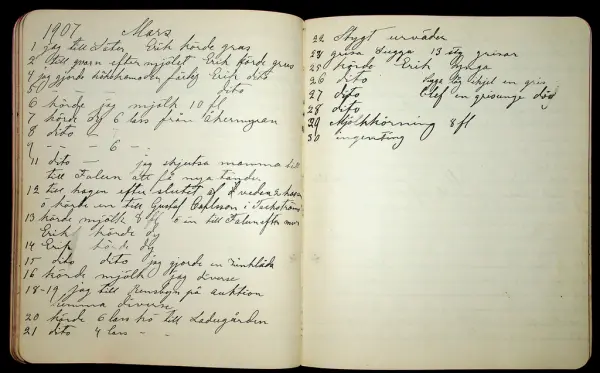 1907 Mars
1 jag till Säter Erik körde grus
2 till qvarn efter mjölet Erik körde grus
4 jag gjorde Erik dito
5 dito — — dito
6 körde jag mjölk 10 fl
7 körde dy 6 lass från Åkermyran
8 dito — 7
9 — — 6 —
11 dito — jag skjutsa mamma
till Falun att få nya tänder
12 till hagen efter slutet af veden 2 lass
o körde en till Gustaf Carlsson i
13 körde mjölk 8 fl o in till Falun efter
Erik körde dy
14 Erik körde dy
15 dito dito jag gjorde en zinklåda
16 körde mjölk jag diverse
18-19 jag till på auktion
hemma diverse
20 körde 6 lass hö till Ladugården
21 dito 4 lass — —
22 Stygt urväder
24 grisa Sugga 13 styg grisar
25 körde Erik dynga
26 dito Sugga låg ihjel en gris
27 dito Olof en grisunge död
28 dito
29 Mjölkkörning 8 fl
30 ingenting